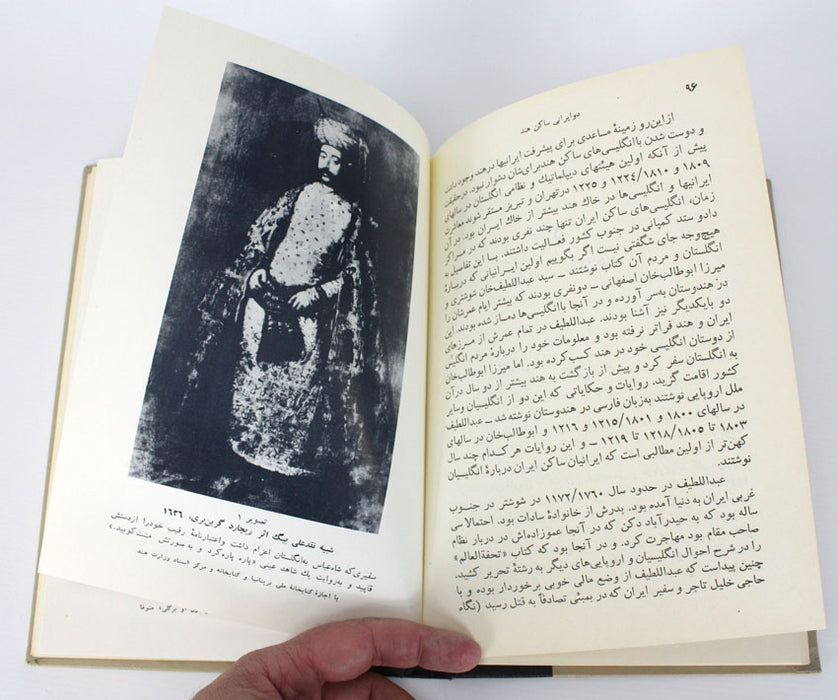 ۹۶
دو ایرانی ساکن هند
از این‌رو زمینهٔ مساعدی برای پیشرفت ایرانیها در هند وجود داشت
و دوست شدن با انگلیسی‌های ساکن هند برای‌شان دشوار نبود. درحقیقت
پیش از آنکه اولین هیئتهای دیپلماتیك و نظامی انگلستان در سالهای
۱۸۰۹ و ۱۸۱۰/۱۲۲۴ و ۱۲۲۵ در تهران و تبریز مستقر شوند معاشرت
ایرانیها و انگلیسی‌ها در خاك هند بیشتر از خاك ایران بود. در آن
زمان، انگلیسی‌های ساکن ایران تنها چند نفری بودند که در مراکز
دادوستد کمپانی در جنوب کشور فعالیت داشتند. با این تفاصیل به
هیچ‌وجه جای شگفتی نیست اگر بگوییم اولین ایرانیانی که دربارهٔ
انگلستان و مردم آن کتاب نوشتند – سید عبداللطیف‌خان شوشتری و
میرزا ابوطالب‌خان اصفهانی – دونفری بودند که بیشتر ایام عمرشان را
در هندوستان به‌سر آورده و در آنجا با انگلیسی‌ها دمساز شده بودند. این
دو بایکدیگر نیز آشنا بودند. عبداللطیف در تمام عمرش از مرزهای
ایران و هند فراتر نرفته بود و معلومات خود را دربارهٔ مردم انگلیس
از دوستان انگلیسی خود در هند کسب کرده بود. اما میرزا ابوطالب‌خان
به انگلستان سفر کرد و پیش از بازگشت به هند بیشتر از دو سال در آن
کشور اقامت گزید. روایات و حکایاتی که این دو از انگلیسیان وسایر
ملل اروپایی نوشتند به‌زبان فارسی در هندوستان نوشته شد – عبداللطیف
در سالهای ۱۸۰۰ و ۱۸۰۱/۱۲۱۵ و ۱۲۱۶ و ابوطالب‌خان در سالهای
۱۸۰۳ تا ۱۸۰۵/۱۲۱۸ تا ۱۲۱۹ – و این روایات هرکدام چند سال
کهن‌تر از اولین مطالبی است که ایرانیان ساکن ایران دربارهٔ انگلیسیان
نوشتند.
عبداللطیف در حدود سال ۱۱۷۲/۱۷۶۰ در شوشتر در جنوب
غربی ایران به دنیا آمده بود. پدرش از خانوادهٔ سادات بود. احتمالا سی
ساله بود که به حیدرآباد دکن که در آنجا عموزاده‌اش در دربار نظام
صاحب مقام بود مهاجرت کرد. و در آنجا بود که کتاب «تحفةالعالم»
را در شرح احوال انگلیسیان و اروپایی‌های دیگر به رشتهٔ تحریر کشید.
چنین پیداست که عبداللطیف از وضع مالی خوبی برخوردار بوده و با
حاجی خلیل تاجر و سفیر ایران که در بمبئی تصادفاً به قتل رسید (نگاه
تصویر ۱
شبیه نقدعلی بیگ اثر ریچارد گرین‌بری، ۱۶۲۶
سفیری‌که شاه‌عباس به‌انگلستان اعزام داشت واعتبارنامهٔ رقیب خودرا ازدستش
قاپید و به‌روایت یك شاهد عینی «پاره پاره‌کرد و به صورتش مشت‌کوبید.»
با اجازهٔ کتابخانهٔ ملی بریتانیا و کتابخانه و مرکز اسناد وزارت هند